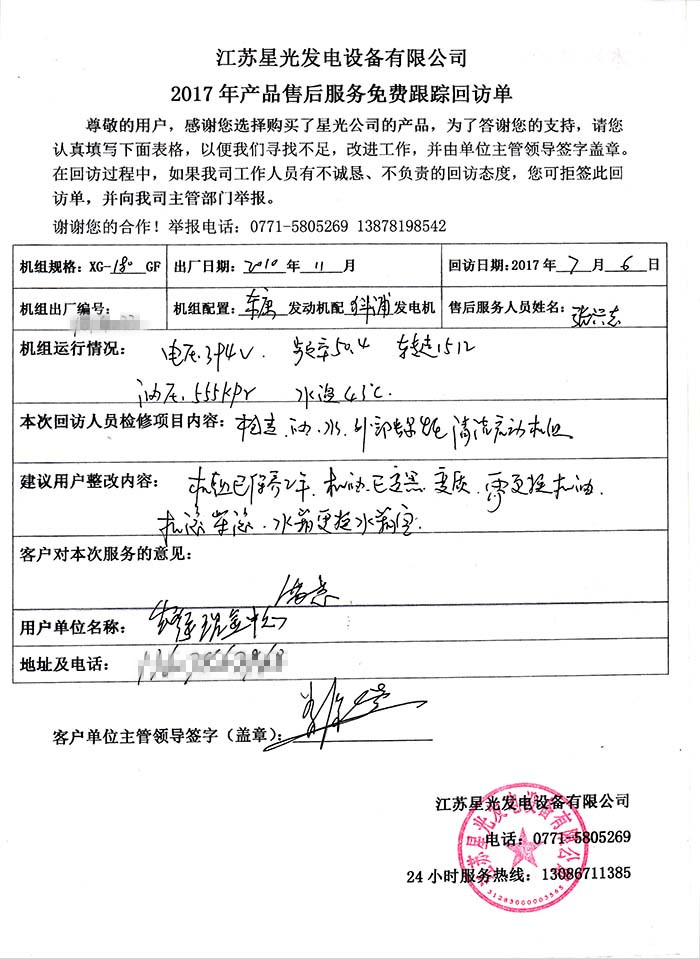 江苏星光发电设备有限公司
2017年产品售后服务免费跟踪回访单
尊敬的用户，感谢您选择购买了星光公司的产品，为了答谢您的支持，请您
认真填写下面表格，以便我们寻找不足，改进工作，并由单位主管领导签字盖章。
在回访过程中，如果我司工作人员有不诚恳、不负责的回访态度，您可拒签此回
访单，并向我司主管部门举报。
谢谢您的合作！举报电话：0771-5805269 13878198542
机组规格：XG-180GF 出厂日期：2010年11月 回访日期：2017年7月6日
机组出厂编号： 机组配置：东康发动机配 斯浦发电机 售后服务人员姓名：
机组运行情况： 电压394V. 频率50.4 转速1512
油压.555kpr 水温43℃.
本次回访人员检修项目内容：检查.油.水.外部 清洁启动机组
建议用户整改内容： 机组已保养2年.机油已变黑.变质.需更换机油.
机滤 柴滤.水箱更换水箱宝.
客户对本次服务的意见：
满意
用户单位名称： 中心
地址及电话：
客户单位主管领导签字（盖章）：
江苏星光发电设备有限公司
电话：0771-5805269
24小时服务热线：13086711385
江苏星光发电设备有限公司